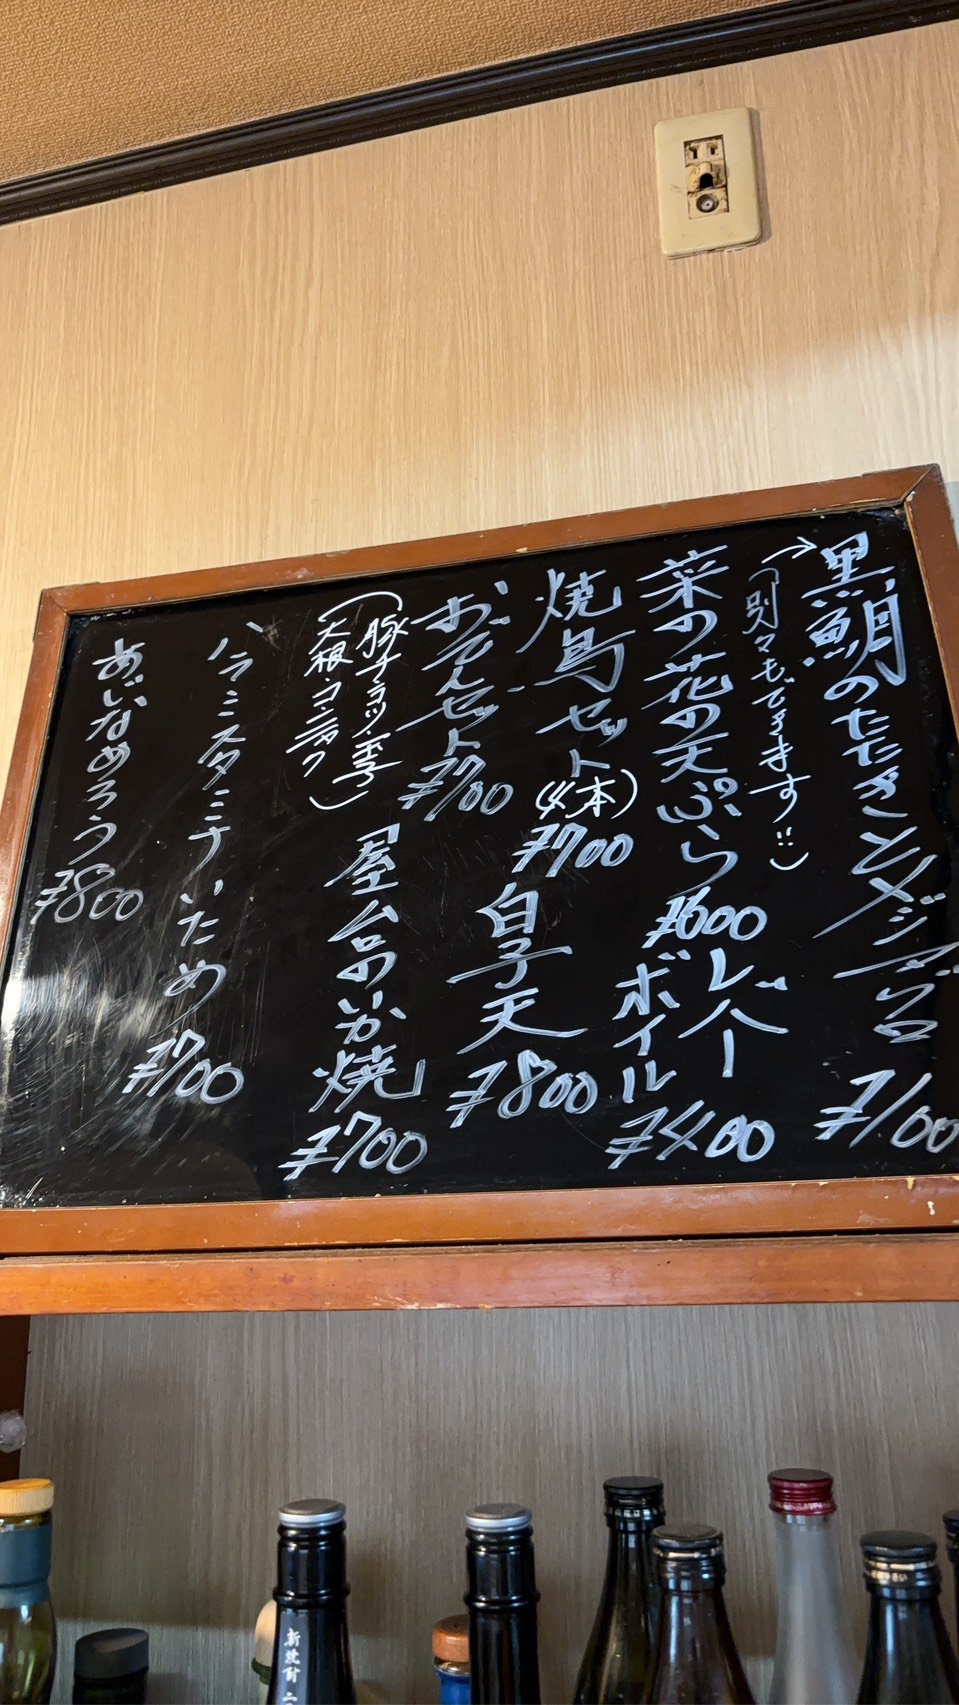 黒鯛のたたき
¥1100
(別々もできます!!)
菜の花の天ぷら
¥600
レバー
ボイル
¥400
焼鳥セット
(4本)
¥700
白子天
¥800
おでんセット
¥700
(豚ナンコツ・玉子
大根・コンニャク)
屋台のいか焼
¥700
ハラミスタミナいため
¥700
あじなめろう
¥800
新焼酎